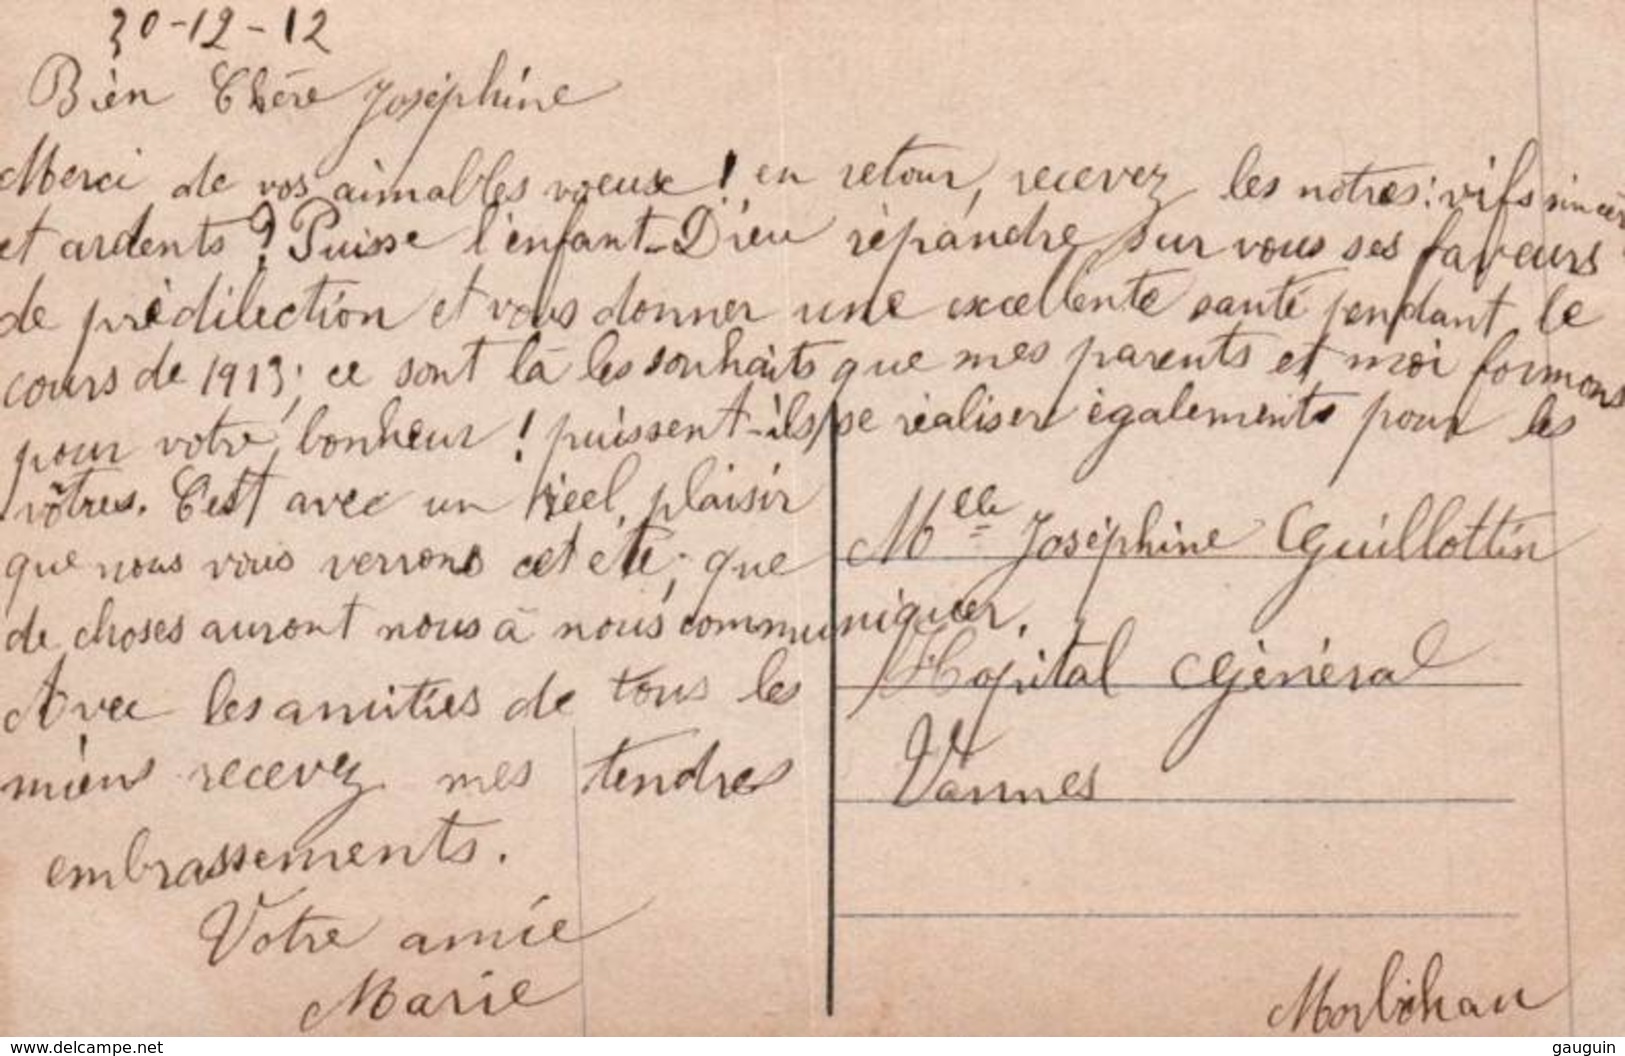 30-12-12
Bien Chère Joséphine
Merci de vos aimables voeux ! en retour, recevez les notres : vifs sincères
et ardents ? Puisse l'enfant-Dieu répandre sur vous ses faveurs
de prédilection et vous donner une excellente santé pendant le
cours de 1913 ; ce sont là les souhaits que mes parents et moi formons
pour votre bonheur ! puissent-ils se réaliser également pour les
vôtres. C'est avec un réel plaisir
que nous vous verrons cet été ; que
de choses auront nous à nous communiquer.
Avec les amitiés de tous les
miens recevez mes tendres
embrassements.
Votre amie
Marie
Melle Joséphine Guillottin
Hopital Général
Vannes
Morbihan
www.delcampe.net
gauguin